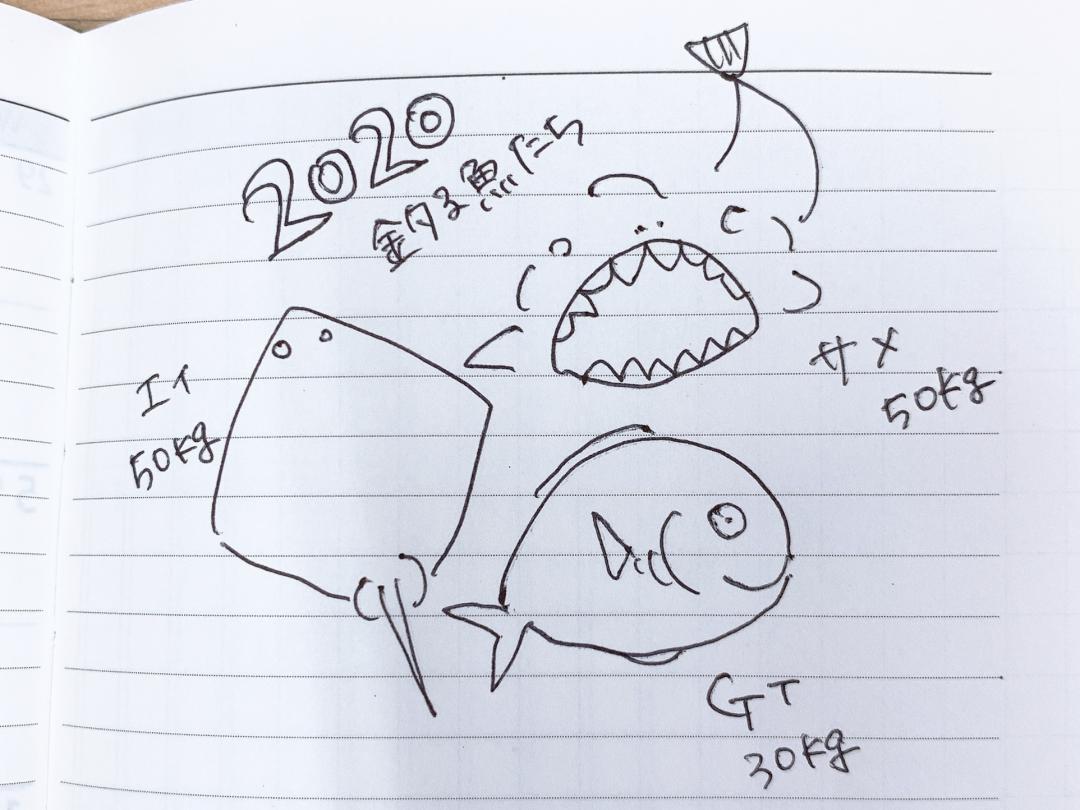 2020
釣る魚たち
エイ
50kg
サメ
50kg
GT
30kg